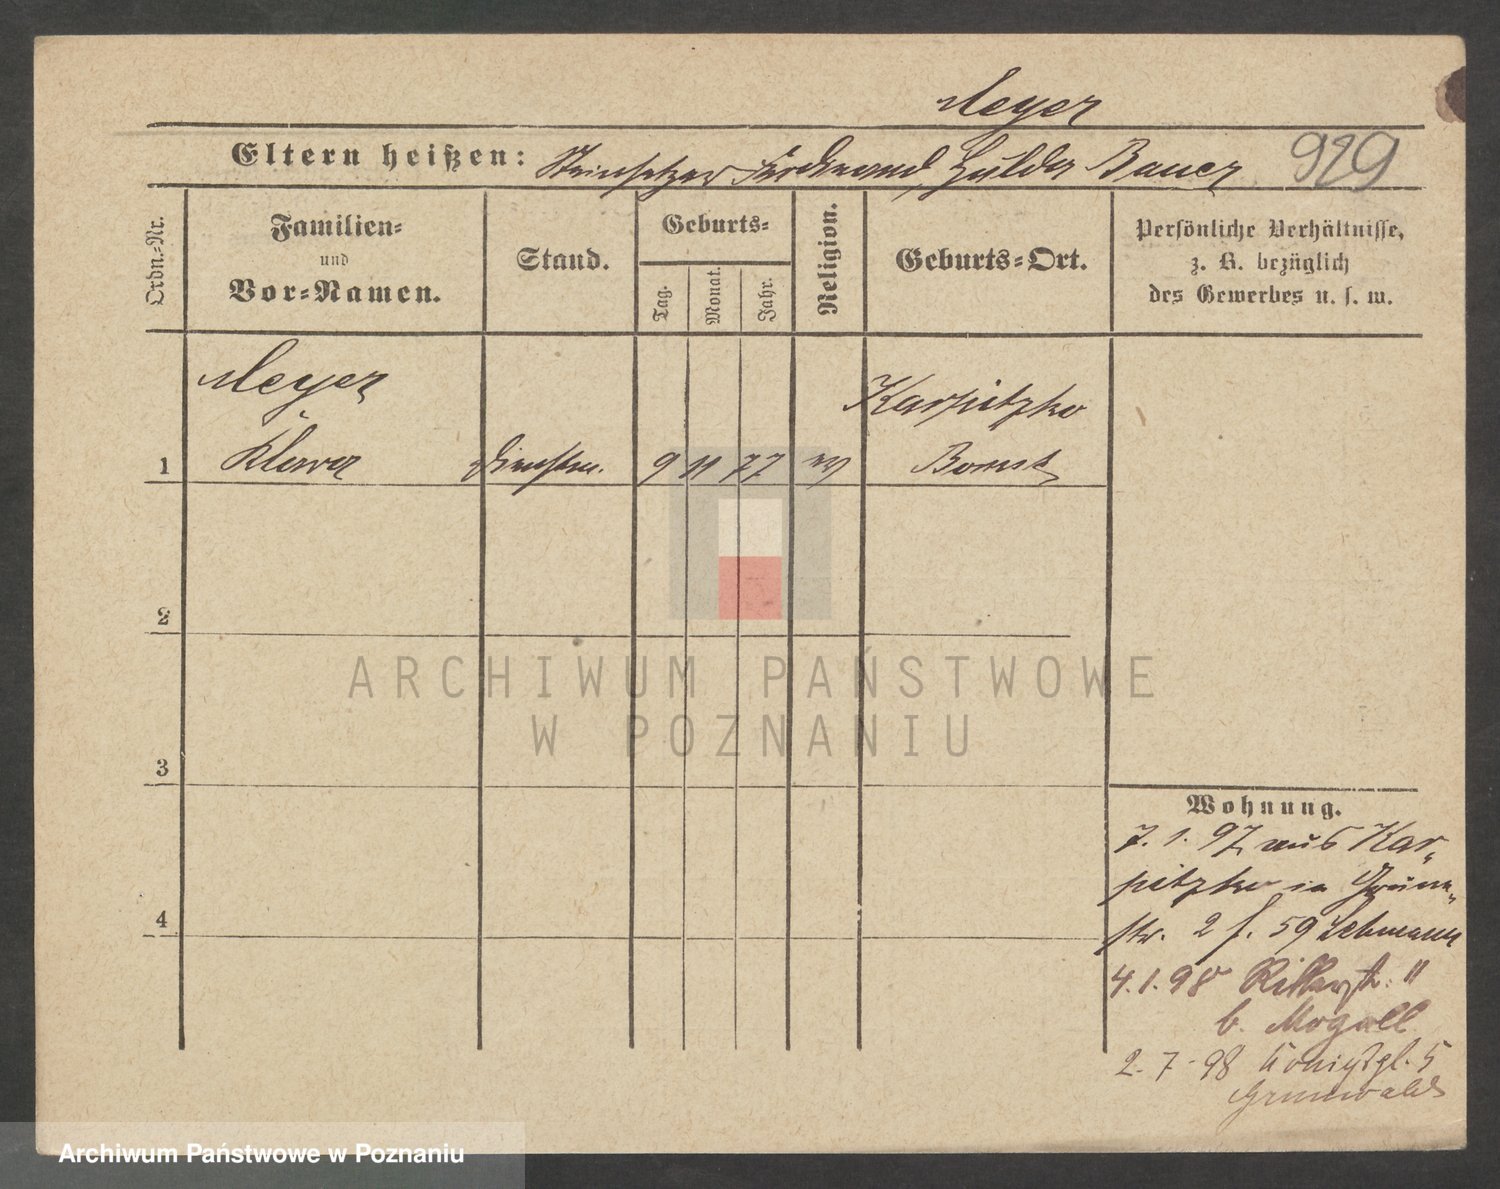 Meyer
Eltern heißen: Steinsetzer Ferdinand, Hulda Bauer 929
Ordn.-Nr.
Familien-
und
Vor-Namen.
Stand.
Geburts-
Tag.
Monat.
Jahr.
Religion.
Geburts-Ort.
Persönliche Verhältnisse,
z. B. bezüglich
des Gewerbes u. s. w.
Meyer
Karpitzko
1 Klara Dienstm. 9 11 77 ev Bomst
2
ARCHIWUM PAŃSTWOWE
W POZNANIU
3
4
Wohnung.
7. 1. 97 aus Kar-
pitzko in Grün-
str. 2 f. 59 Lehmann
4. 1. 98 Ritterstr. 11
b.
2. 7. 98 Königspl. 5
Grunwald
Archiwum Państwowe w Poznaniu